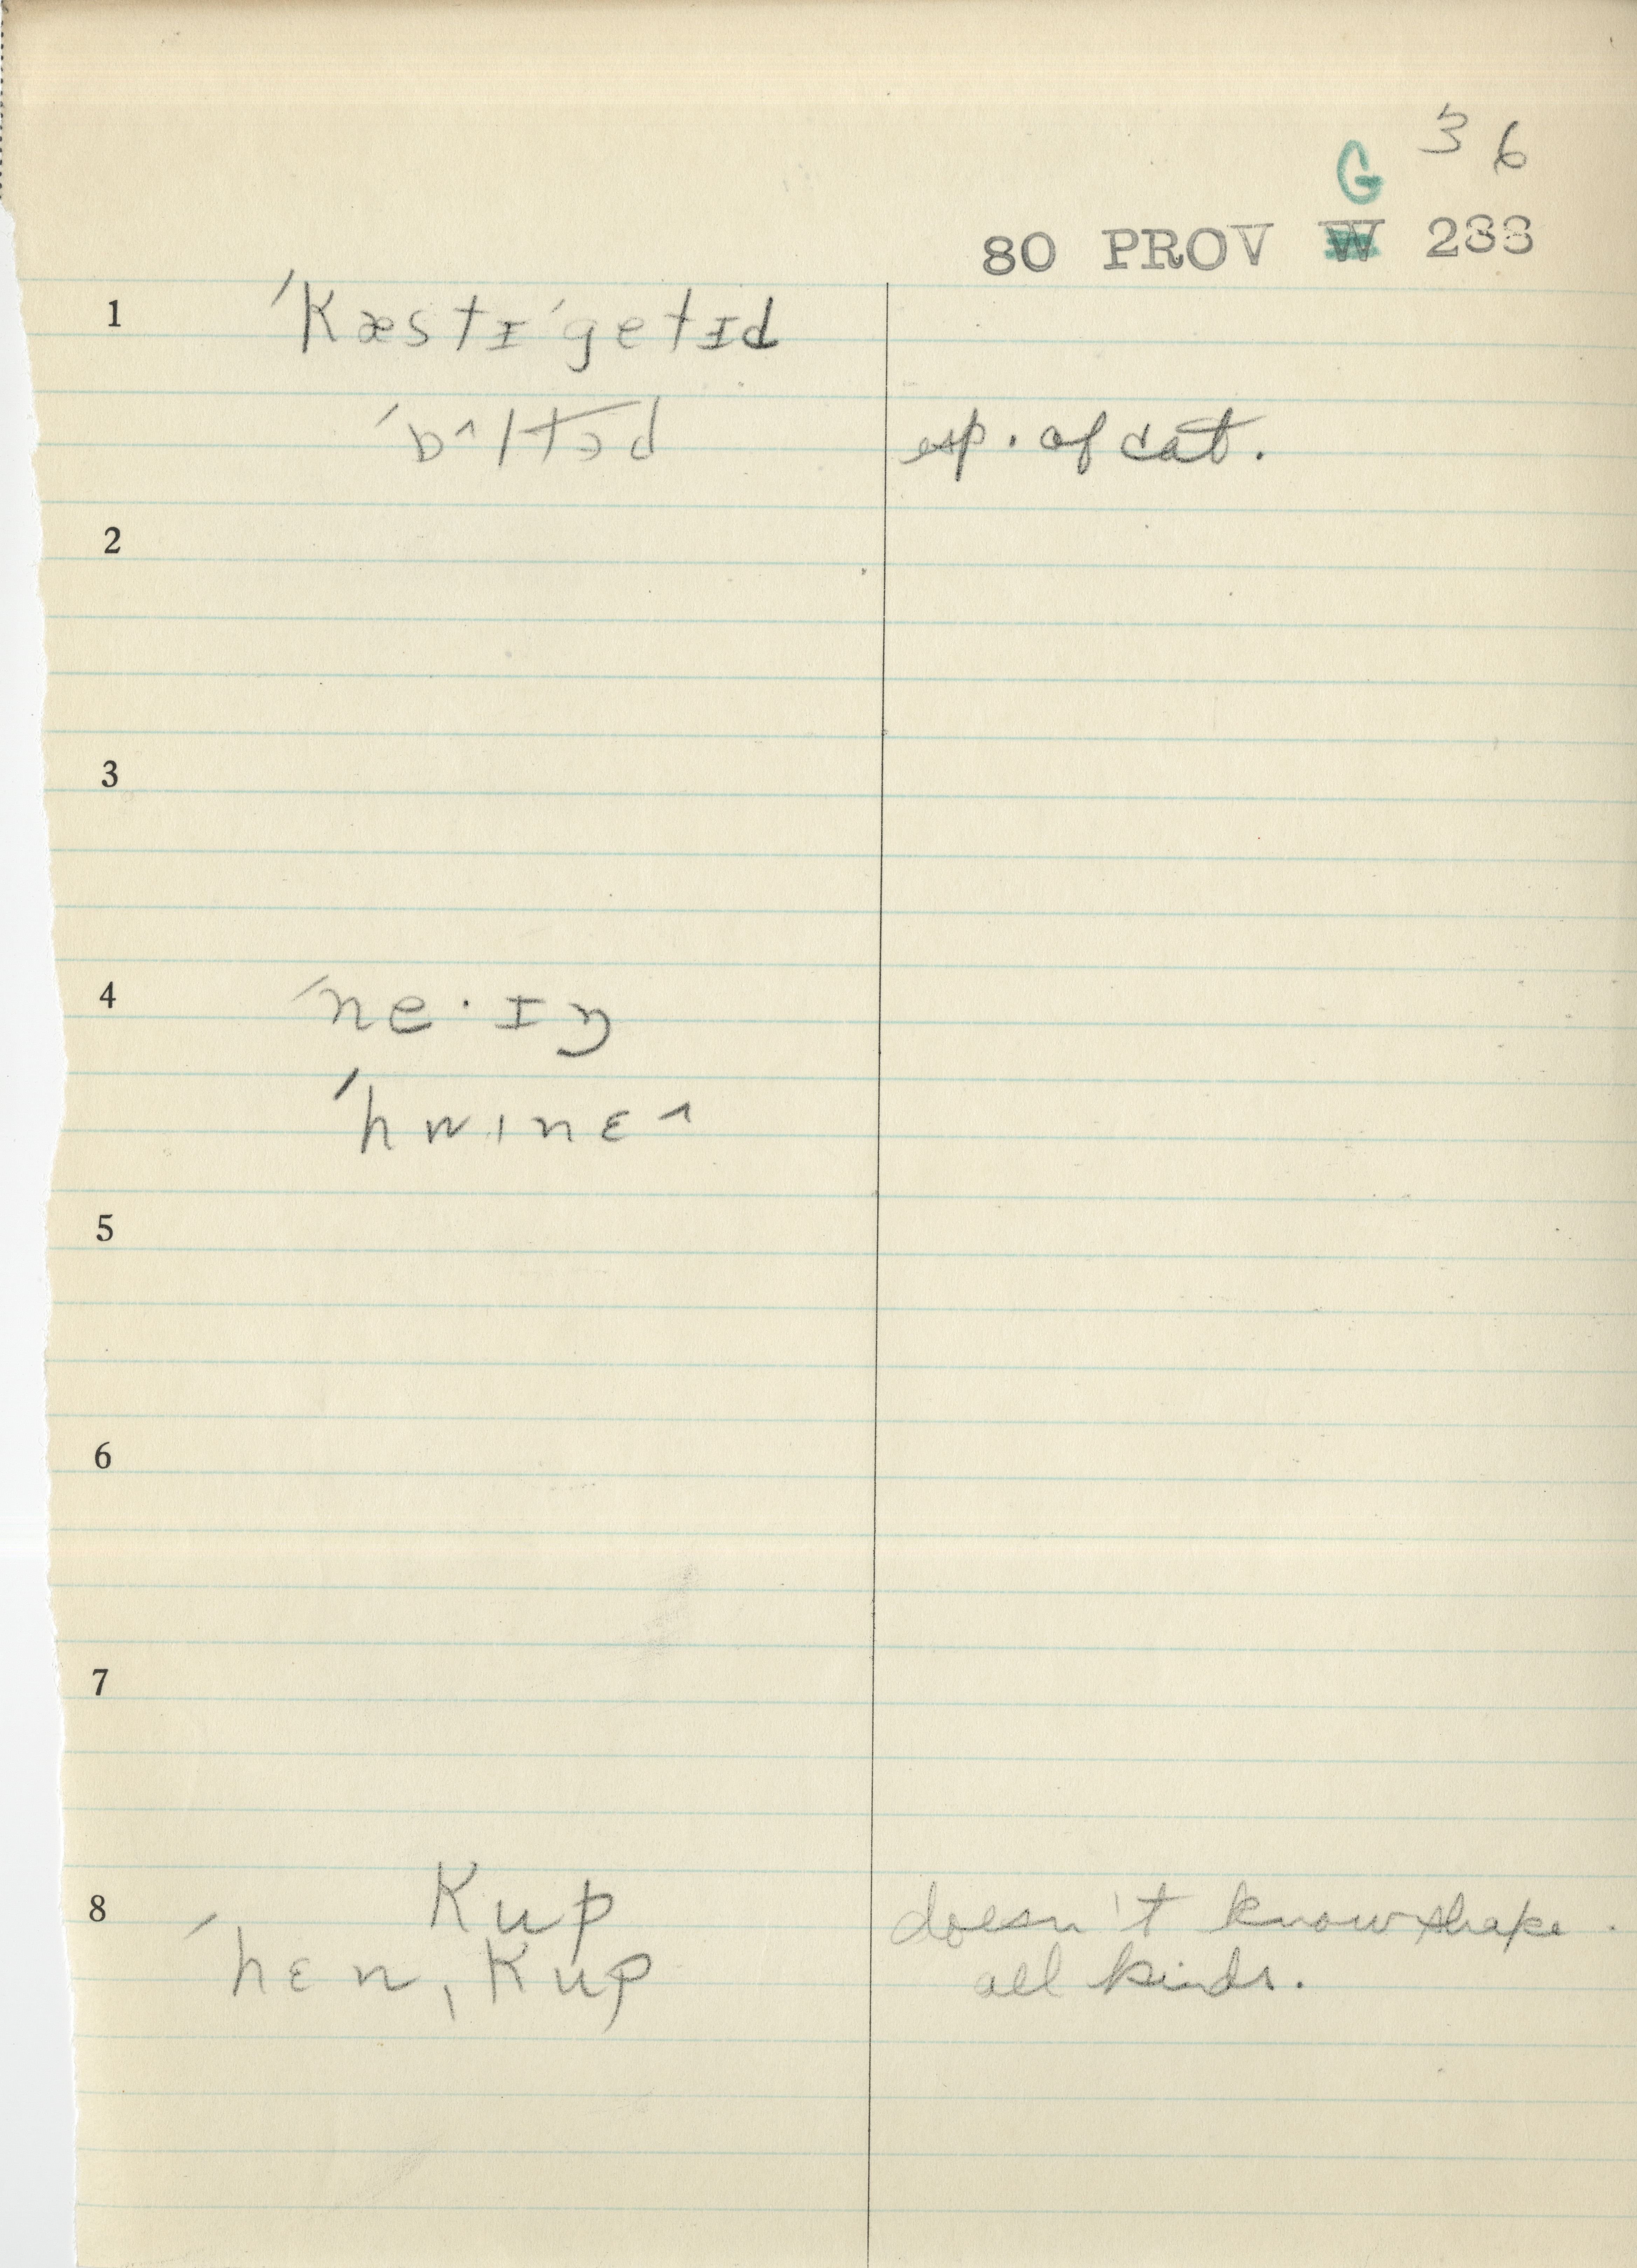 36
G
80 PROV W 233
1 ˈKæstɪˈgetɪd
ˈɒ^ltəd esp. of cat.
2
3
4 ˈne·ɪŋ
ˈhwɪnɛ^
5
6
7
8 Kup doesn't know shape.
ˈhɛnˌKup all kinds.